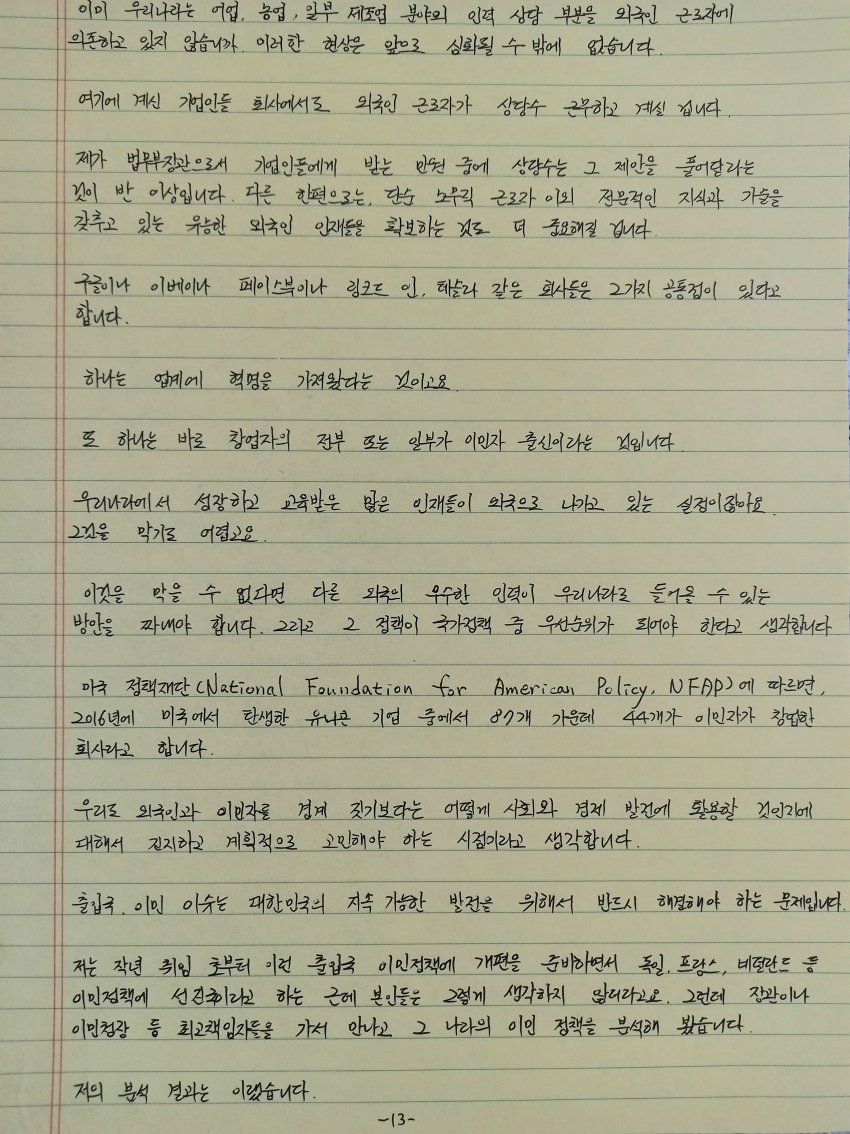 이미 우리나라는 어업, 농업, 일부 제조업 분야의 인력 상당 부분을 외국인 근로자에
의존하고 있지 않습니까. 이러한 현상은 앞으로 심화될 수 밖에 없습니다.
여기에 계신 기업인들 회사에서도 외국인 근로자가 상당수 근무하고 계실 겁니다.
제가 법무부장관으로서 기업인들에게 받는 민원 중에 상당수는 그 제안을 풀어달라는
것이 반 이상입니다. 다른 한편으로는, 단순 노무직 근로자 이외 전문적인 지식과 기술을
갖추고 있는 유능한 외국인 인재들을 확보하는 것도 더 중요해질 겁니다.
구글이나 이베이나 페이스북이나 링크드 인, 테슬라 같은 회사들은 2가지 공통점이 있다고
합니다.
하나는 업계에 혁명을 가져왔다는 것이고요.
또 하나는 바로 창업자의 전부 또는 일부가 이민자 출신이라는 것입니다.
우리나라에서 성장하고 교육받은 많은 인재들이 외국으로 나가고 있는 실정이잖아요.
그것을 막기도 어렵고요.
이것을 막을 수 없다면 다른 외국의 우수한 인력이 우리나라로 들어올 수 있는
방안을 짜내야 합니다. 그리고 그 정책이 국가정책 중 우선순위가 되어야 한다고 생각합니다.
미국 정책재단(National Foundation for American Policy, NFAP)에 따르면,
2016년에 미국에서 탄생한 유니콘 기업 중에서 87개 가운데 44개가 이민자가 창업한
회사라고 합니다.
우리도 외국인과 이민자를 경계 짓기보다는 어떻게 사회와 경제 발전에 활용할 것인지에
대해서 진지하고 계획적으로 고민해야 하는 시점이라고 생각합니다.
출입국, 이민 이슈는 대한민국의 지속 가능한 발전을 위해서 반드시 해결해야 하는 문제입니다.
저는 작년 취임 초부터 이런 출입국 이민정책에 개편을 준비하면서 독일, 프랑스, 네덜란드 등
이민정책에 선진국이라고 하는 근데 본인들은 그렇게 생각하지 않더라고요. 그런데 장관이나
이민청장 등 최고책임자들을 가서 만나고 그 나라의 이민 정책을 분석해 봤습니다.
저의 분석 결과는 이랬습니다.
-13-